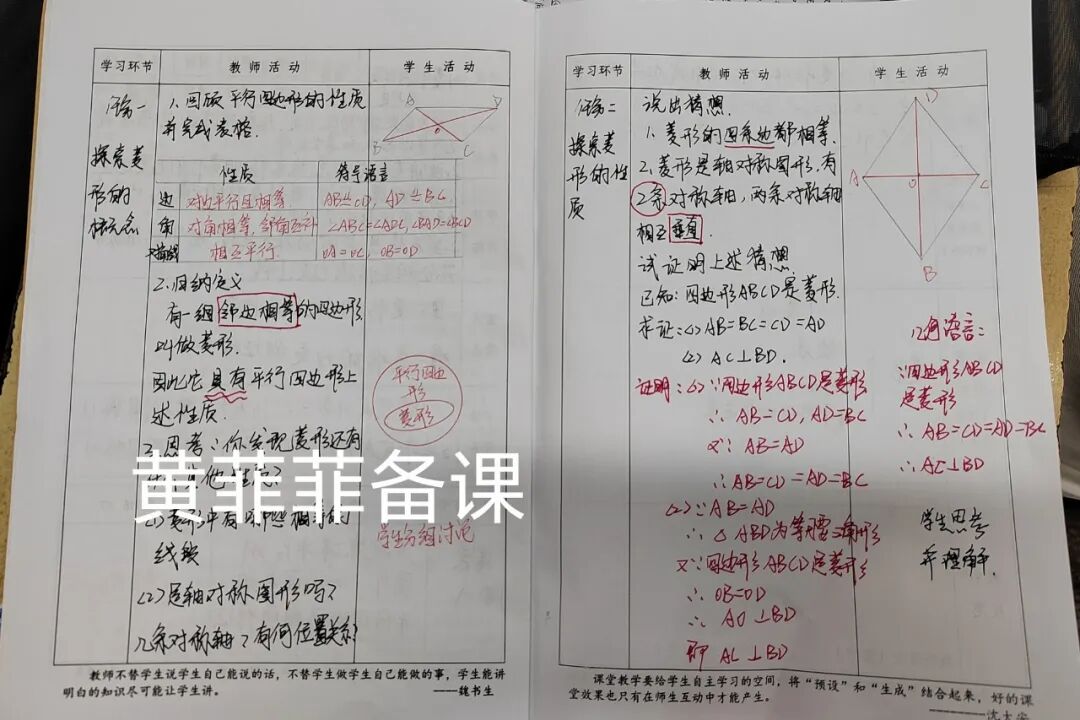 学习环节 教师活动 学生活动
任务一
探索菱
形的
概念
1、回顾平行四边形的性质
并完成表格.
A D
O
B C
性质 符号语言
边 对边平行且相等. AB≌CD, AD≌BC
角 对角相等,邻角互补 ∠ABC=∠ADC, ∠BAD=∠BCD
对角线 相互平行. OA=OC, OB=OD
2、归纳定义
有一组邻边相等的四边形
叫做菱形.
因此它具有平行四边形上
述性质.
平行四边
形
菱形
3、思考:你发现菱形还有
其他性质?
黄菲菲备课
(1)菱形中有哪些相等的
线段
学生分组讨论
(2)是轴对称图形吗?
几条对称轴?有何位置关系?
教师不替学生说学生自己能说的话,不替学生做学生自己能做的事,学生能讲
明白的知识尽可能让学生讲。 ——魏书生
学习环节 教师活动 学生活动
任务二
探索菱
形的性
质
说出猜想.
1、菱形的四条边都相等.
2、菱形是轴对称图形.有
2条对称轴,两条对称轴
相互垂直.
试证明上述猜想.
已知:四边形ABCD是菱形.
求证:(1) AB=BC=CD=AD
(2) AC⊥BD.
证明:(1)∵四边形ABCD是菱形
∴ AB=CD, AD=BC
又∵ AB=AD
∴ AB=CD=AD=BC
(2)∵AB=AD
∴△ABD为等腰三角形
又∵四边形ABCD是菱形
∴ OB=OD
∴ AO⊥BD
即 AC⊥BD
D
A O C
B
几何语言:
∵四边形ABCD
是菱形
∴ AB=CD=AD=BC
∴ AC⊥BD
学生思考
并理解.
课堂教学要给学生自主学习的空间,将“预设”和“生成”结合起来,好的课
堂效果也只有在师生互动中才能产生。